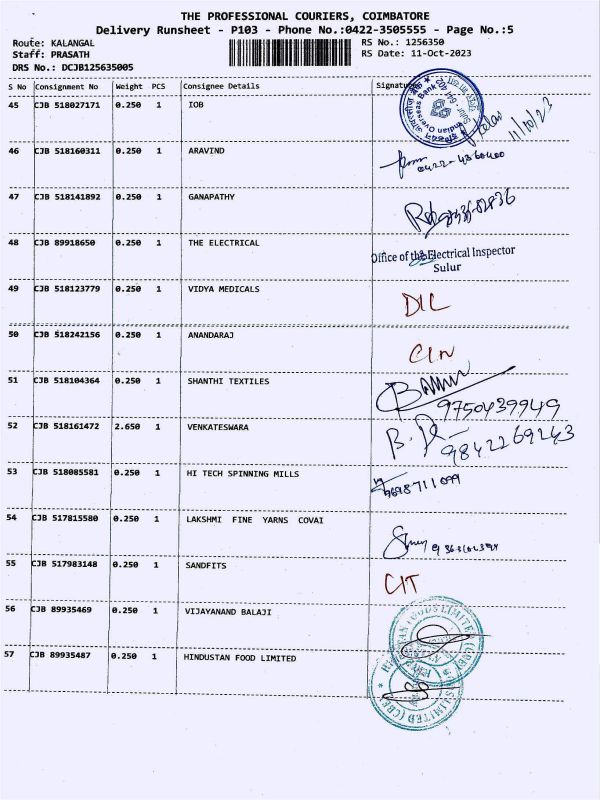 THE PROFESSIONAL COURIERS, COIMBATORE
Delivery Runsheet - P103 - Phone No.:0422-3505555 - Page No.:5
Route: KALANGAL
Staff: PRASATH
DRS No.: DCJB125635005
RS No.: 1256350
RS Date: 11-Oct-2023
S No Consignment No Weight PCS Consignee Details Signature
45 CJB 518027171 0.250 1 IOB
Indian Overseas Bank
11/10/23
46 CJB 518160311 0.250 1 ARAVIND
47 CJB 518141892 0.250 1 GANAPATHY
48 CJB 89918650 0.250 1 THE ELECTRICAL
Office of the Electrical Inspector
Sulur
49 CJB 518123779 0.250 1 VIDYA MEDICALS
DIL
50 CJB 518242156 0.250 1 ANANDARAJ
51 CJB 518104364 0.250 1 SHANTHI TEXTILES
9750439949
52 CJB 518161472 2.650 1 VENKATESWARA
9842269243
53 CJB 518085581 0.250 1 HI TECH SPINNING MILLS
9698711099
54 CJB 517815580 0.250 1 LAKSHMI FINE YARNS COVAI
55 CJB 517983148 0.250 1 SANDFITS
CIT
56 CJB 89935469 0.250 1 VIJAYANAND BALAJI
57 CJB 89935487 0.250 1 HINDUSTAN FOOD LIMITED